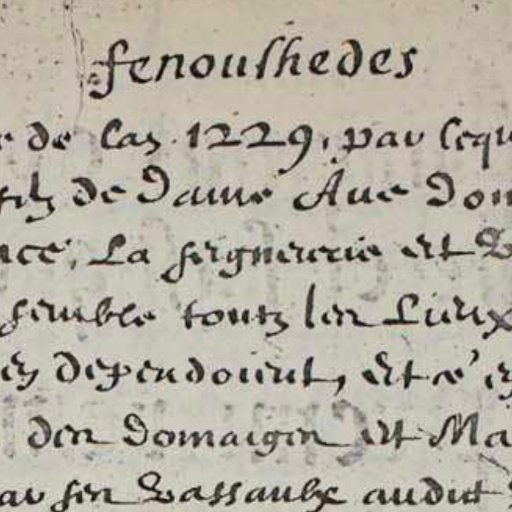 fenoulhedes
de de Lan 1229, par lequ
filz de Dame Aue Dom
nce, La seigneurie et V
semble toutz les Lieux
en dependoient, et ce
des domaiges et Ma
par ses vassaulx audict